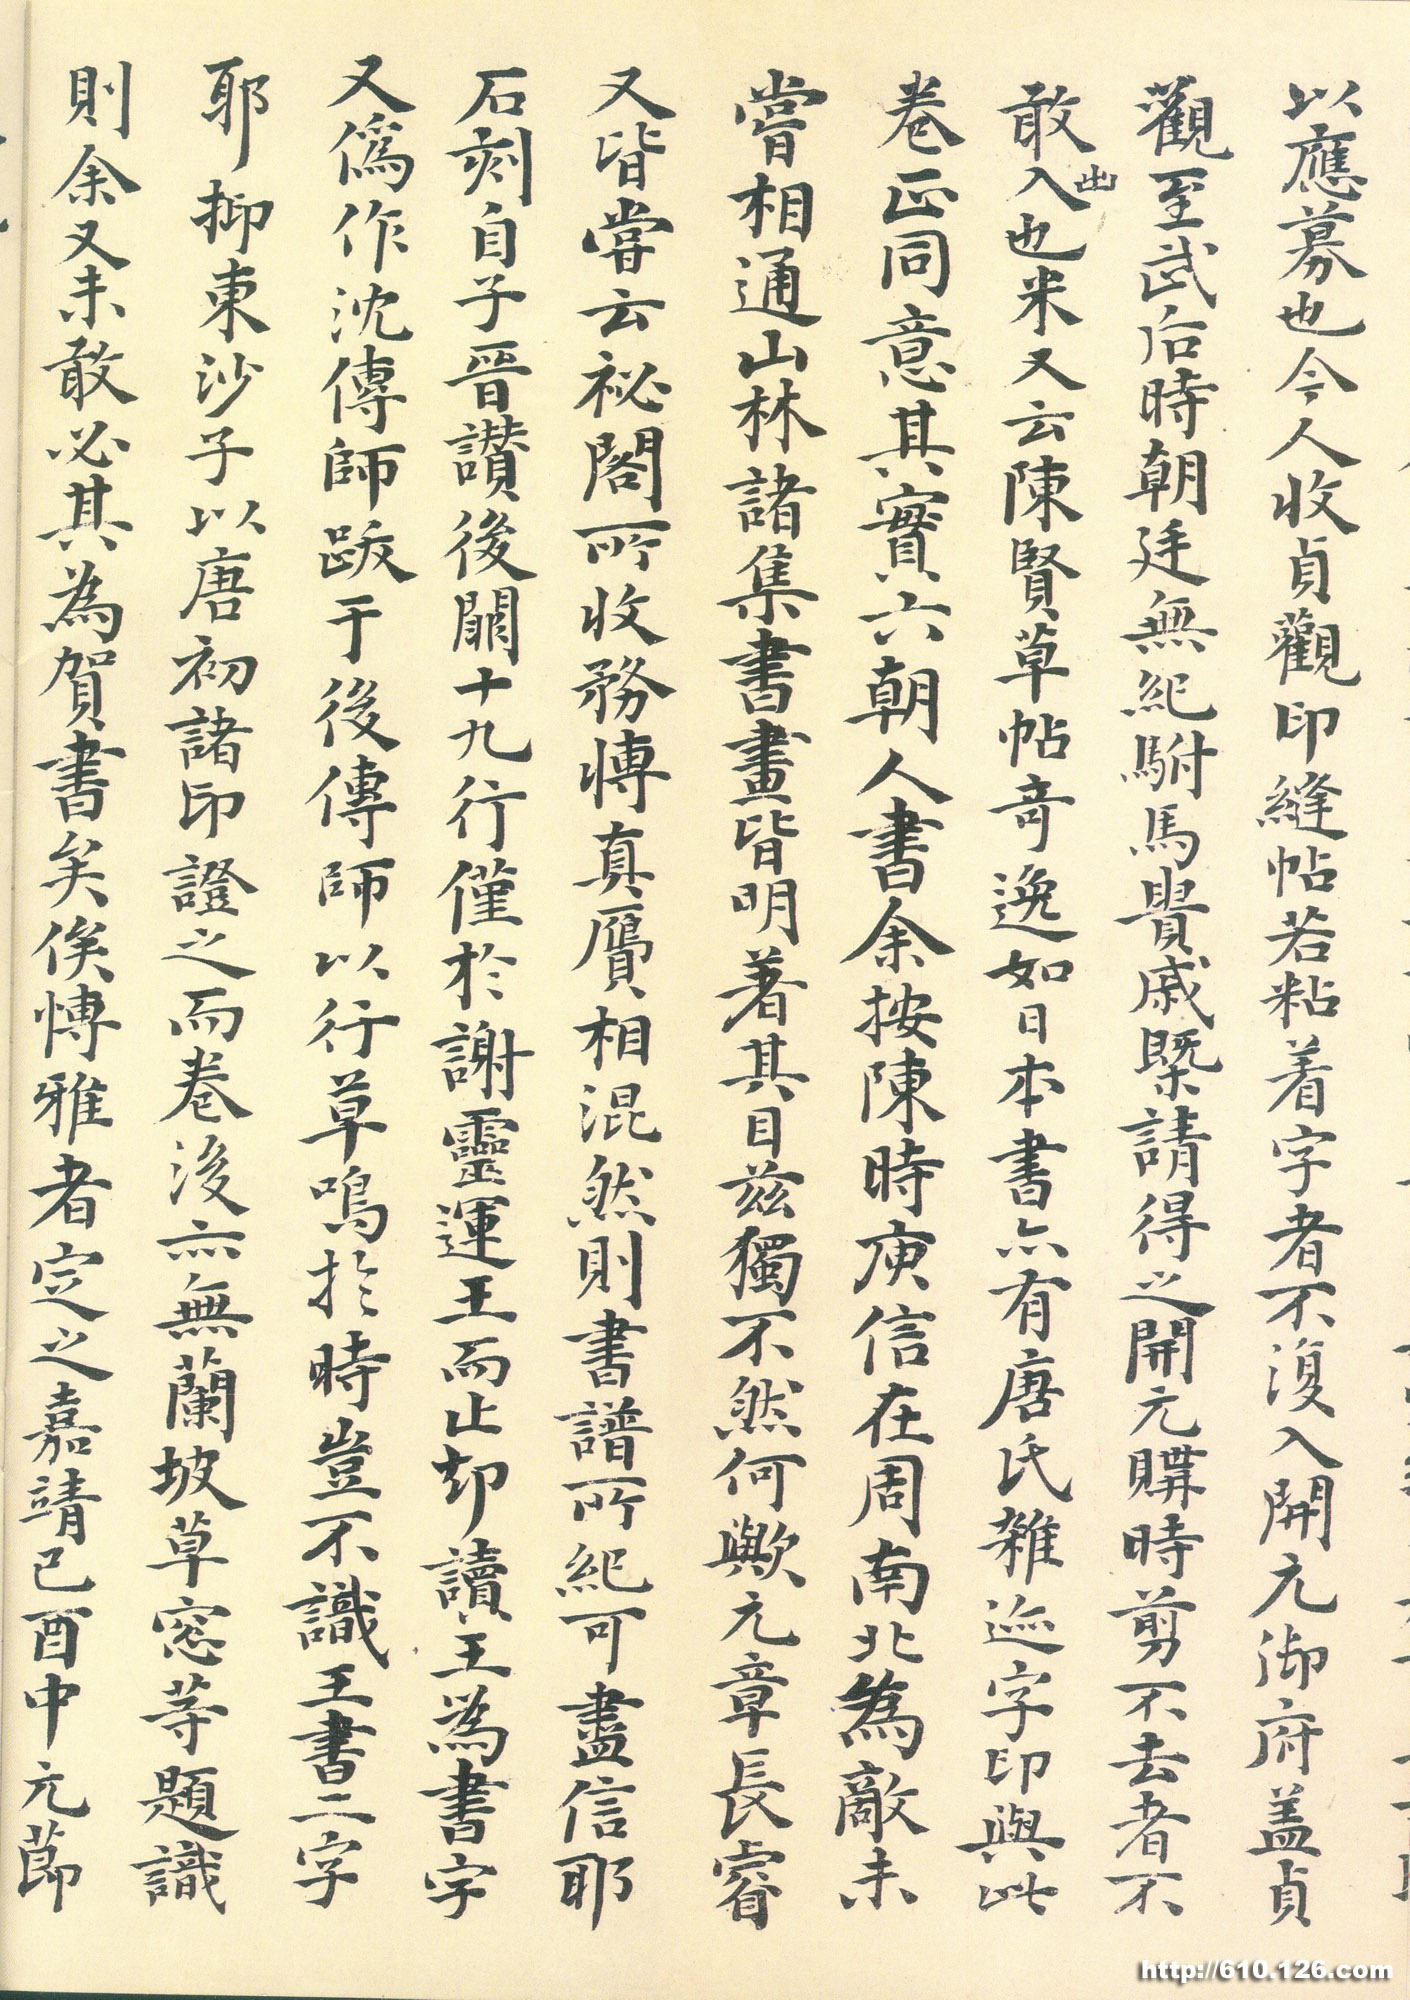 以應募也今人收貞觀印縫帖若粘着字者不復入開元御府盖貞
觀至武后時朝廷無紀駙馬貴戚漿請得之開元購時剪不去者不
敢入出也米又云陳賢草帖奇逸如日本書亦有唐氏雜迹字印與此
卷正同意其實六朝人書余按陳時庾信在周南北為敵未
嘗相通山林諸集書畫皆明著其目茲獨不然何歟元章長睿
又皆嘗云祕閣所收務博真贗相混然則書譜所紀可盡信耶
石刻自子晉讃後闕十九行僅於謝靈運王而止却讀王為書字
又偽作沈傳師跋于後傳師以行草鳴於時豈不識王書二字
耶抑東沙子以唐初諸印證之而卷後亦無蘭坡草窓等題識
則余又未敢必其為賀書矣俟博雅者定之嘉靖己酉中元節
http://610.126.com